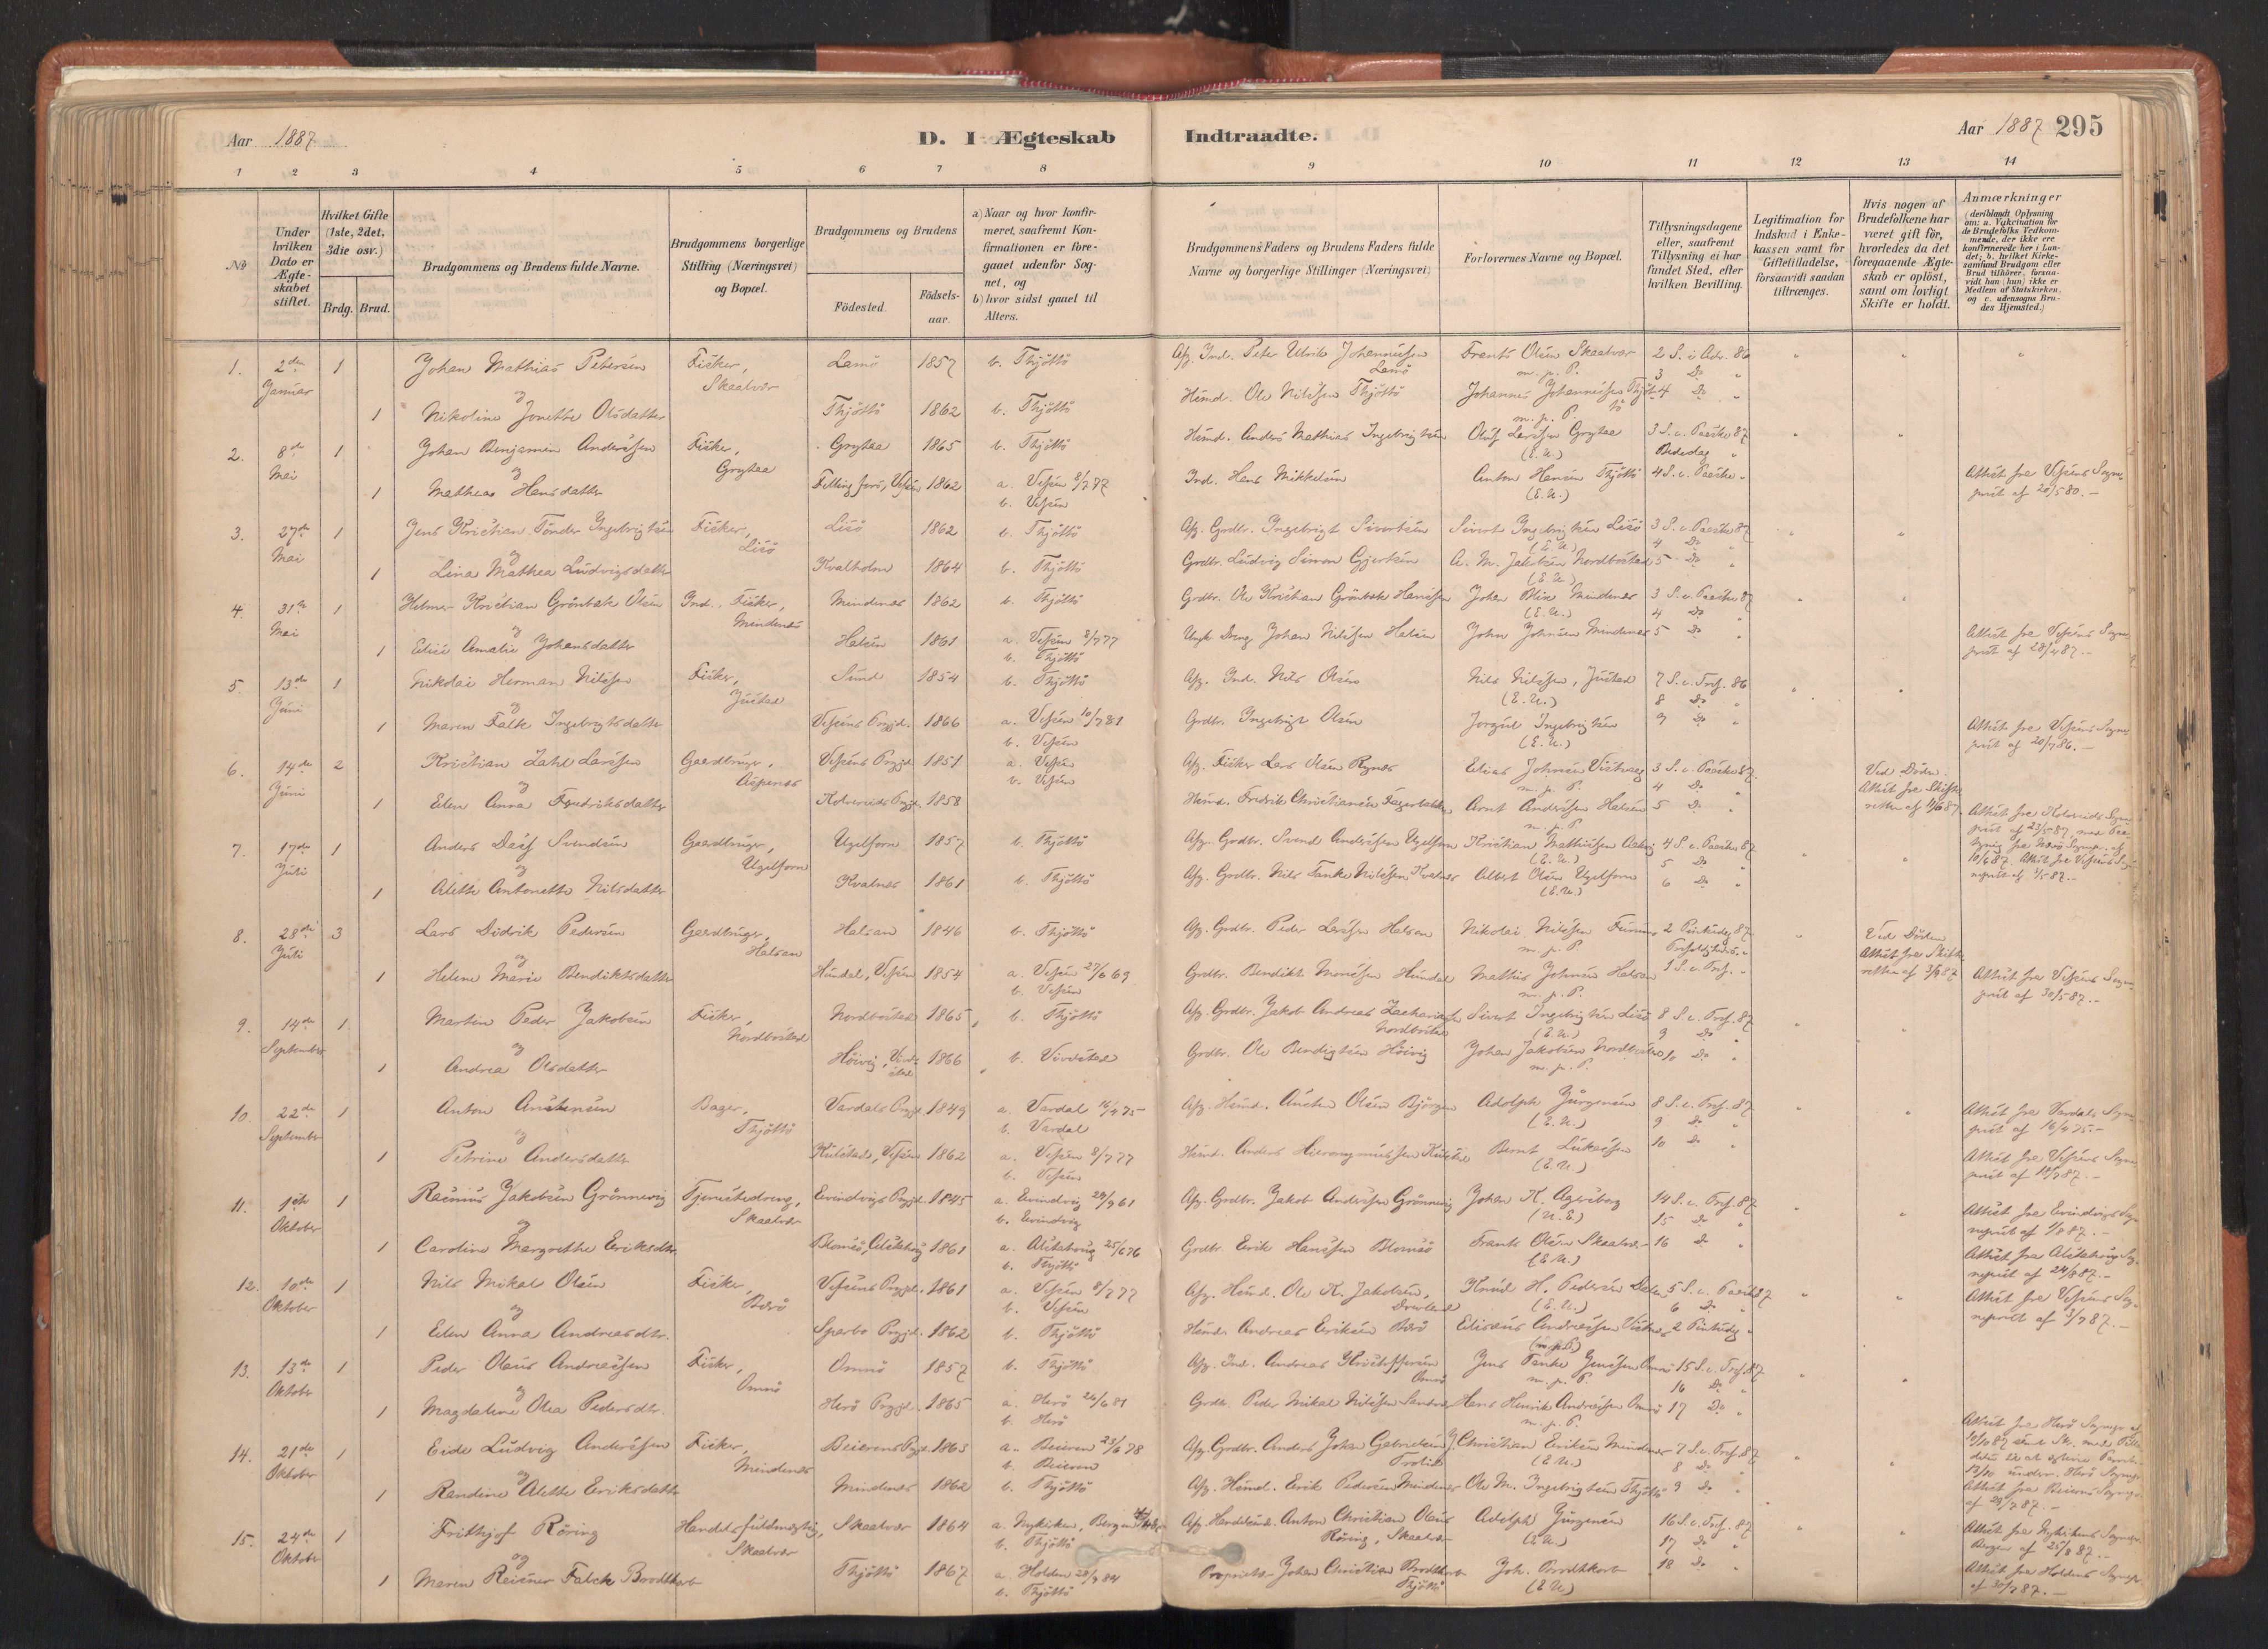 Aar 1887
D. I Ægteskab Indtraadte.
Aar 1887 295
1 2 3 4 5 6 7 8 9 10 11 12 13 14
№
Under hvilken Dato er Ægteskabet stiftet.
Hvilket Gifte (1ste, 2det, 3die osv.)
Brdg. Brud.
Brudgommens og Brudens fulde Navne.
Brudgommens borgerlige Stilling (Næringsvei) og Bopæl.
Brudgommens og Brudens
Födested. Födselsaar.
a) Naar og hvor konfirmeret, saafremt Konfirmationen er foregaaet udenfor Sognet, og
b) hvor sidst gaaet til Alters.
Brudgommens Faders og Brudens Faders fulde Navne og borgerlige Stillinger (Næringsvei)
Forlovernes Navne og Bopæl.
Tillysningsdagene eller, saafremt Tillysning ei har fundet Sted, efter hvilken Bevilling.
Legitimation for Indskud i Enkekassen samt for Giftetilladelse, forsaavidt saadan tiltrænges.
Hvis nogen af Brudefolkene har været gift för, hvorledes da det foregaaende Ægteskab er oplöst, samt om lovligt Skifte er holdt.
Anmærkninger
(deriblandt Oplysning om: a. Vakcination for de Brudefolks Vedkommende, der ikke ere konfirmerede her i Landet; b. hvilket Kirkesamfund Brudgom eller Brud tilhörer, forsaavidt han (hun) ikke er Medlem af Statskirken, og c. udensogns Brudes Hjemsted.)
1. 2den Januar 1 Johan Mathias Petersen Fisker, Skaalvær Lamö 1857 b. Thjöttö Afg. Ind. Peter Ulrik Johannesen Lamö Frants Olsen Skaalvær m. p. P. 2 S. i Adv. 86
3 Do "
og
1 Nikoline Jonette Olsdatter Thjöttö 1862 b. Thjöttö Husmd. Ole Nilssen Thjöttö Johannes Johannessen Thjöttö m. p. P. 4 Do "
2. 8de Mai 1 Johan Benjamin Anderssen Fisker, Grytaa Grytaa 1865 b. Thjöttö Husmd. Anders Mathias Ingebrigtsen Oluf Larssen Grytaa (E. U.) 3 S. e. Paaske 87
Bededag "
og
1 Mathea Hansdatter Vefsen 1862 a. Vefsen 8/7 77 b. Vefsen Ind. Hans Mikkelsen Anton Hansen Thjöttö (E. U.) 4 S. e. Paaske " Attest fra Vefsens Sogneprest af 20/5 80.
3. 27de Mai 1 Jens Kristian Tönder Ingebrigtsen Fisker, Lisö Lisö 1862 b. Thjöttö Afg. Grdbr. Ingebrigt Sivertsen Sivert Ingebrigtsen Lisö (E. U.) 3 S. e. Paaske 87
4 Do "
og
1 Lina Mathea Ludvigsdatter Kvalholm 1864 b. Thjöttö Grdbr. Ludvig Simon Gjertsen A. M. Jakobsen Nordbostad (E. U.) 5 Do "
4. 31te Mai 1 Hilmar Kristian Grönbæk Olsen Ind., Fisker, Mindenæs Mindenæs 1862 b. Thjöttö Grdbr. Ole Kristian Grönbæk Hanssen Johan Blix Mindenæs (E. U.) 3 S. e. Paaske 87
4 Do "
og
1 Elise Amalie Johansdatter Halsen 1861 a. Vefsen 8/7 77 b. Thjöttö Ungk. Dreng Johan Nilssen Halsen John Johnsen Mindenæs 5 Do " Attest fra Vefsens Sogneprest af 28/4 87.
5. 13de Juni 1 Nikolai Herman Nilssen Fisker, Jüstad Sund 1854 b. Thjöttö Afg. Ind. Nils Olsen Nils Nilssen, Jüstad (E. U.) 7 S. e. Tref. 86
8 Do "
og
1 Maren Falk Ingebrigtsdatter Vefsens Prgjd. 1866 a. Vefsen 10/7 81 b. Vefsen Grdbr. Ingebrigt Olsen Ingebrigtsen (E. U.) 9 Do " Attest fra Vefsens Sogneprest af 20/7 86.
6. 14de Juni 2 Kristian Zahl Larssen Gaardbruger, Aspenæs Vefsens Prgjd. 1851 a. Vefsen b. Vefsen Afg. Fisker Lars Olsen Rynes Elias Johnsen m. p. P. 3 S. e. Paaske 87.
4 Do " Ved Döden. Attest fra Skifteretten af 11/6 87.
og
1 Elen Anna Fredriksdatter Kolvereids Prgjd. 1858 Husmd. Fredrik Christiansen Arnt Anderssen Halsen m. p. P. 5 Do " Attest fra Kolvereids Sogneprest af 23/5 87
7. 17de Juli 1 Anders Dass Svendsen Gaardbruger, Ugelforn Ugelforn 1857 b. Thjöttö Afg. Grdbr. Svend Anderssen Ugelforn Kristian Mathiassen (E. U.) 4 S. e. Paaske 87
5 Do "
og
1 Alette Antonette Nilsdatter Kvalnæs 1861 b. Thjöttö Afg. Grdbr. Nils Tanke Nilssen Kvalnæs Albert Olsen Ugelforn (E. U.) 6 Do "
8. 28de Juli 3 Lars Didrik Pedersen Gaardbruger, Halsan Halsan 1846 b. Thjöttö Afg. Grdbr. Peder Larssen Halsan Nikolai Nilssen m. p. P. 2 Pintsedag 87
Trefoldighedss. " Ved Döden Attest fra Skifteretten af 3/7 87
og
1 Helene Marie Bendiktsdatter Hundal, Vefsen 1854 a. Vefsen 27/6 69 b. Vefsen Grdbr. Bendikt Monssen Hundal Mathis Johnsen Halsan m. p. P. 1 S. e. Tref. " Attest fra Vefsens Sogneprest af 30/5 87.
9. 14de September 1 Martin Peder Jakobsen Fisker, Nordbostad Nordbostad 1865 b. Thjöttö Afg. Grdbr. Jakob Andreas Zachariassen Nordbostad Sivert Ingebrigtsen Lisö (E. U.) 8 S. e. Tref. 87
9 Do "
og
1 Andrea Olsdatter Höivig, Vivelstad 1866 b. Vivelstad Grdbr. Ole Bendigtsen Höivig Johan Jakobsen Nordbostad m. p. P. 10 Do "
10. 22de September 1 Anton Austensen Bager, Thjöttö Vardals Prgjd. 1849 a. Vardal 16/4 75 b. Vardal Afg. Husmd. Austen Olsen Bjørgen Adolph Jürgensen (E. U.) 8 S. e. Tref. 87
9 Do " Attest fra Vardals Sogneprest af 16/4 75.
og
1 Petrine Andersdatter Kulstad, Vefsen 1862 a. Vefsen 8/7 77 b. Vefsen Husmd. Anders Hieronymussen Kulstad Bernt Lukassen (E. U.) 10 Do " Attest fra Vefsens Sogneprest af 14/7 87.
11. 1ste Oktober 1 Rasmus Jakobsen Grönnevig Tjenestedreng, Skaalvær Evindvigs Prgjd. 1845 a. Evindvig 29/9 61 b. Evindvig Afg. Grdbr. Jakob Anderssen Grönnevig Johan K. Agersborg (U. E.) 14 S. e. Tref. 87
15 Do " Attest fra Evindvigs Sogneprest af 1/8 87.
og
1 Caroline Margrethe Eriksdtr. Blomsö, Alstahaug 1861 a. Alstahaug 25/6 76 b. Thjöttö Grdbr. Erik Hanssen Blomsö Frants Olsen Skaalvær (E. U.) 16 Do " Attest fra Alstahaug Sogneprest af 24/8 87.
12. 10de Oktober 1 Nils Mikal Olsen Fisker, Bærö Vefsens Prgjd. 1861 a. Vefsen 8/7 77 b. Vefsen Afg. Husmd. Ole K. Jakobsen, Drevland Knud H. Pedersen Dalen (E. U.) 5 S. e. Paaske 87
6 Do " Attest fra Vefsens Sogneprest af 3/7 87.
og
1 Elen Anna Andreasdtr. Sparbo Prgjd. 1862 b. Thjöttö Husmd. Andreas Eriksen Bærö Elisæus Andreassen (m. p. P.) 2 Pintsedg. "
13. 13de Oktober 1 Peder Olaus Andreassen Fisker, Omnö Omnö 1857 b. Thjöttö Afg. Ind. Andreas Kristoffersen Omnö Jens Tanke Jenssen Omnö m. p. P. 15 S. e. Tref. 87
16 Do "
og
1 Magdalene Olea Pedersdtr. Herö Prgjd. 1865 a. Herö 26/6 81 b. Herö Grdbr. Peder Mikal Nilssen Hans Henrik Andreassen Omnö m. p. P. 17 Do "
14. 21de Oktober 1 Eide Ludvig Anderssen Fisker, Mindenæs Beierens Prgjd. 1863 a. Beieren 23/6 78 b. Beieren Afg. Grdbr. Anders Johan Gabrielsen J. Christian Eriksen Mindenæs (E. U.) 7 S. e. Tref. 87
8 Do "
og
1 Randine Alette Eriksdatter Mindenæs 1862 b. Thjöttö Afg. Husmd. Erik Pedersen Mindenæs Ole M. Ingebrigtsen Thjöttö 9 Do " Attest fra Beierens Sognepr. af 29/7 87.
15. 24de Oktober 1 Frithjof Röring Handelsfuldmægtig, Skaalvær Skaalvær 1864 a. Nykirken, Bergen b. Thjöttö Afg. Handelsmd. Anton Christian Olaus Röring, Skaalvær Adolph Jürgensen (E. U.) 16 S. e. Tref. 87
17 Do " Attest fra Nykirkens Sognepr. Bergen af 25/8 87.
og
1 Maren Reisner Falck Brodtkorb Thjöttö 1867 a. Holden 28/9 84 b. Thjöttö Proprietær Johan Christian Brodtkorb Thjöttö Joh. Brodtkorb (E. U.) 18 Do " Attest fra Holdens Sognepr. af 30/7 87.